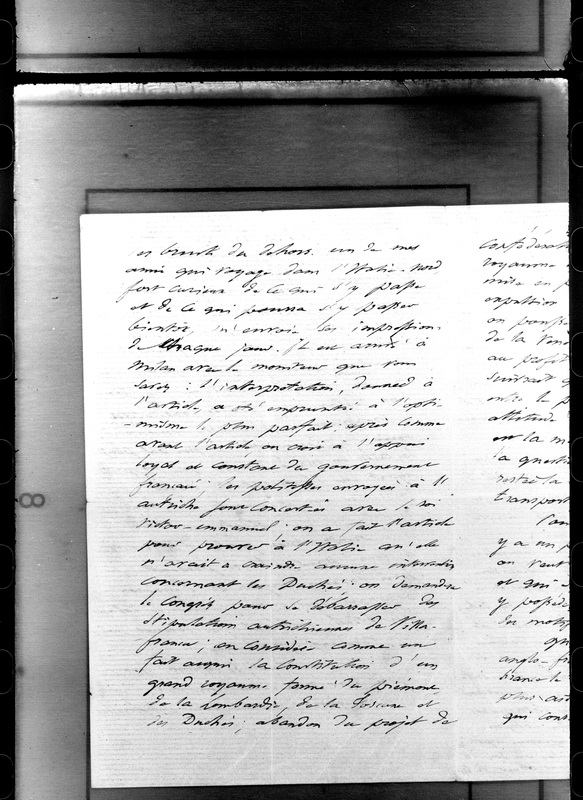 es bruits du dehors. un de mes
amis qui voyage dans l'Italie-nord
fort curieux de ce qui s'y passe
et de ce qui pourra s'y passer
bientôt, m'envoie les impressions
de chaque jour. Il est arrivé à
Milan avec le moniteur que vous
savez : l'interprétation, donnée à
l'article, a été empruntée à l'opti-
-misme le plus parfait. après comme
avant l'article on croit à l'appui
loyal et constant du gouvernement
français ; les politesses envoyées à l'
autriche sont concertées avec le roi
victor-emmanuel ; on a fait l'article
pour prouver à l'Italie qu'elle
n'avait à craindre aucune intervention
concernant les Duchés ; on demandera
le Congrès pour se débarrasser des
stipulations autrichiennes de Villa-
franca ; on considère comme un
fait acquis la constitution d'un
grand royaume formé du piémont
de la lombardie, de la Toscane et
des Duchés ; abandon du projet de
confédérat
royaume
mise en p
expulsion
on pouss
de la Vén
au profit
suivrait
attitude
on la m
la questi
restât la
transport
y a un p
on veut
et qui
des motif
anglo-fr
france le
qui cont
8